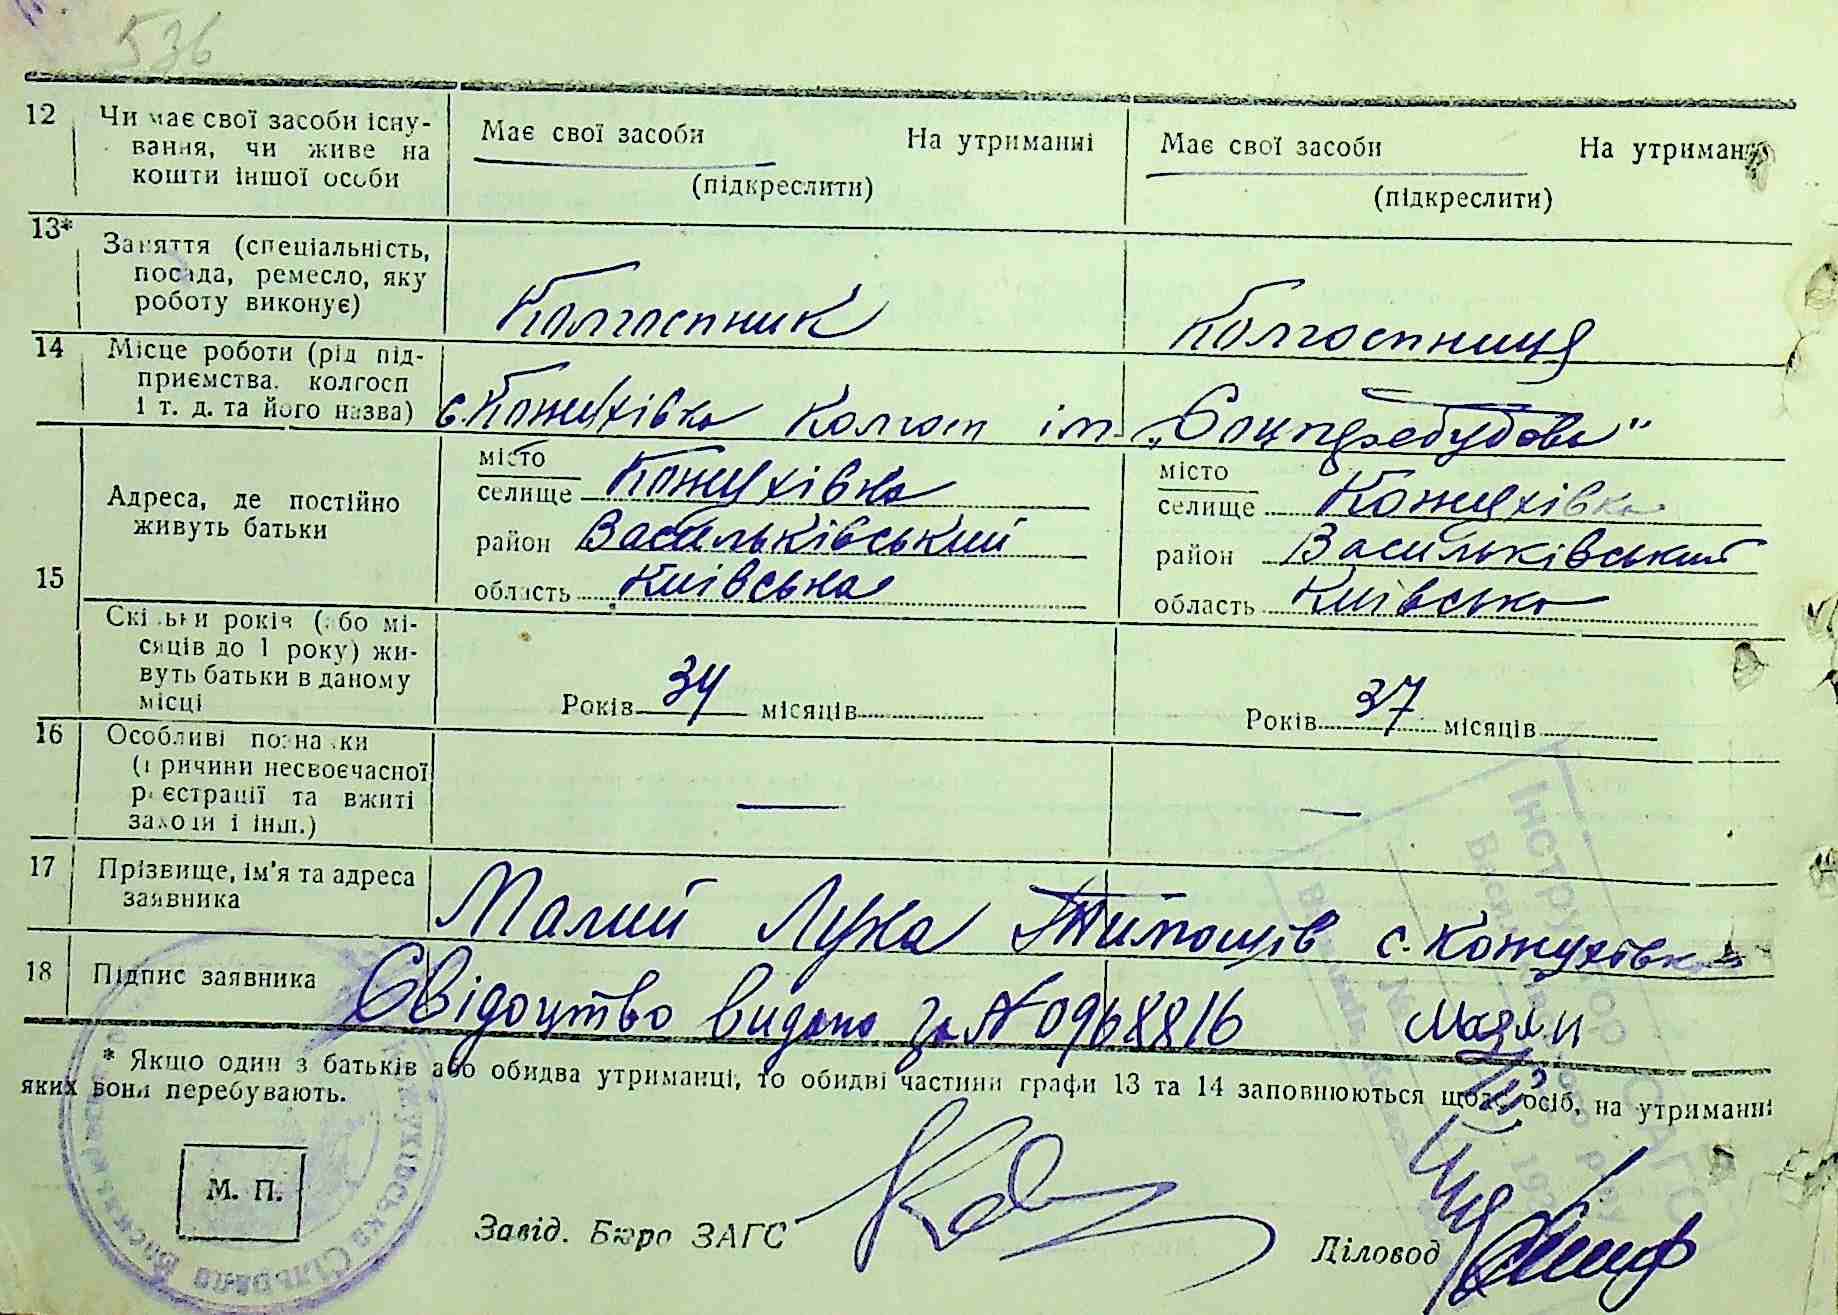 536
12 Чи має свої засоби існу-
вання, чи живе на
кошти іншої особи
Має свої засоби На утриманні
(підкреслити)
Має свої засоби На утриман
(підкреслити)
13* Заняття (спеціальність,
посада, ремесло, яку
роботу виконує)
Колгоспник
Колгоспниця
14 Місце роботи (рід під-
приємства, колгосп
і т. д. та його назва)
с. Кожухівка Колгосп ім. „Соцперебудова"
15 Адреса, де постійно
живуть батьки
місто
селище Кожухівка
район Васильківський
область Київська
місто
селище Кожухівка
район Васильківський
область Київська
Скільки років (або мі-
сяців до 1 року) жи-
вуть батьки в даному
місці
Років 34 місяців
Років 37 місяців
16 Особливі познаки
(причини несвоєчасної
реєстрації та вжиті
заходи і інш.)
— —
17 Прізвище, ім'я та адреса
заявника
Малий Лука Тимошів с. Кожухівка
18 Підпис заявника
Свідоцтво видано за № 0968816
* Якщо один з батьків або обидва утриманці, то обидві частини графи 13 та 14 заповнюються щодо осіб, на утриманні
яких вони перебувають.
М. П.
Завід. Бюро ЗАГС
Діловод
Інструктор ЗАГС
Кожухівська Сільрада